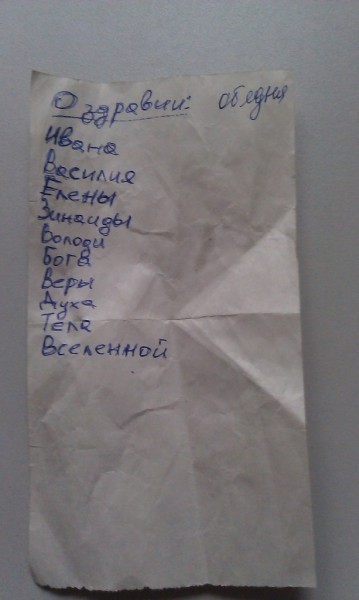 О здравии: обедня
Ивана
Василия
Елены
Зинаиды
Володи
Бога
Веры
Духа
Тела
Вселенной